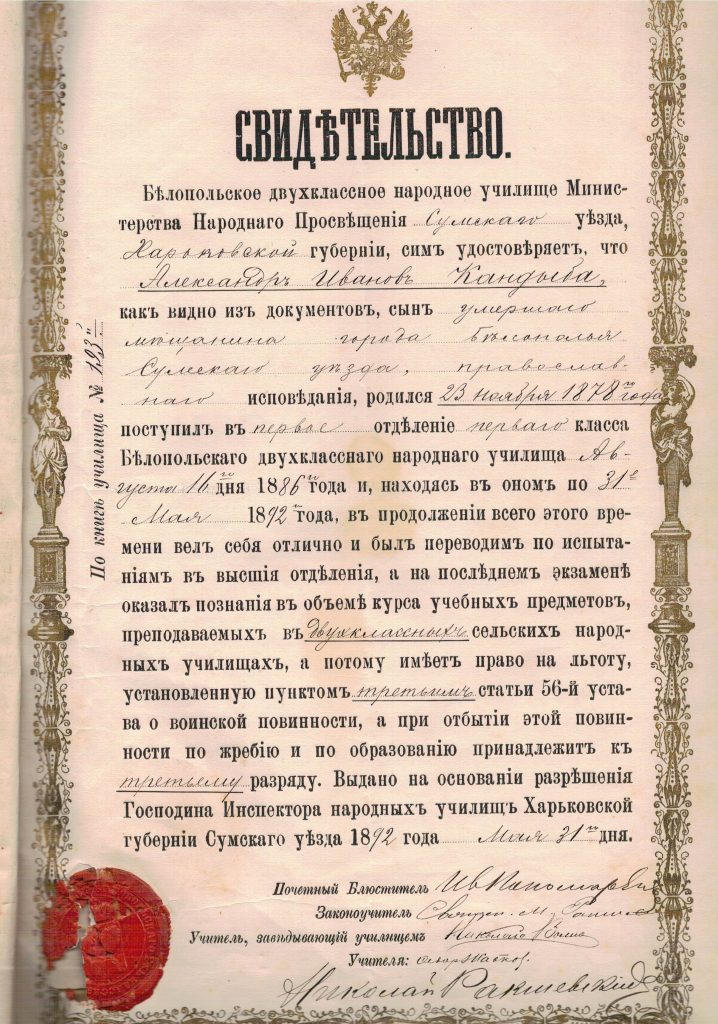 СВИДѢТЕЛЬСТВО.
Бѣлопольское двухклассное народное училище Минис-
терства Народнаго Просвѣщенія Сумскаго уѣзда,
Харьковской губерніи, симъ удостовѣряетъ, что
Александръ Ивановъ Кандыба,
какъ видно изъ документовъ, сынъ умершаго
мѣщанина города Бѣлополья
Сумскаго уѣзда, православ-
наго исповѣданія, родился 23 ноября 1878 го года
поступилъ въ первое отдѣленіе перваго класса
Бѣлопольскаго двухкласснаго народнаго училища Ав-
густа 16 го дня 1886 г года и, находясь въ ономъ по 31 е
Мая 1892 г года, въ продолженіи всего этого вре-
мени велъ себя отлично и былъ переводимъ по испыта-
ніямъ въ высшія отдѣленія, а на послѣднемъ экзаменѣ
оказалъ познанія въ объемѣ курса учебныхъ предметовъ,
преподаваемыхъ въ двухклассныхъ сельскихъ народ-
ныхъ училищахъ, а потому имѣетъ право на льготу,
установленную пунктомъ третьимъ статьи 56-й уста-
ва о воинской повинности, а при отбытіи этой повин-
ности по жребію и по образованію принадлежитъ къ
третьему разряду. Выдано на основаніи разрѣшенія
Господина Инспектора народныхъ училищъ Харьковской
губерніи Сумскаго уѣзда 1892 года Мая 31 го дня.
Почетный Блюститель
Законоучитель Священ. М.
Учитель, завѣдывающій училищемъ Николай
Учителя:
Николай Ракшевскій
По книгѣ училища № 123 й